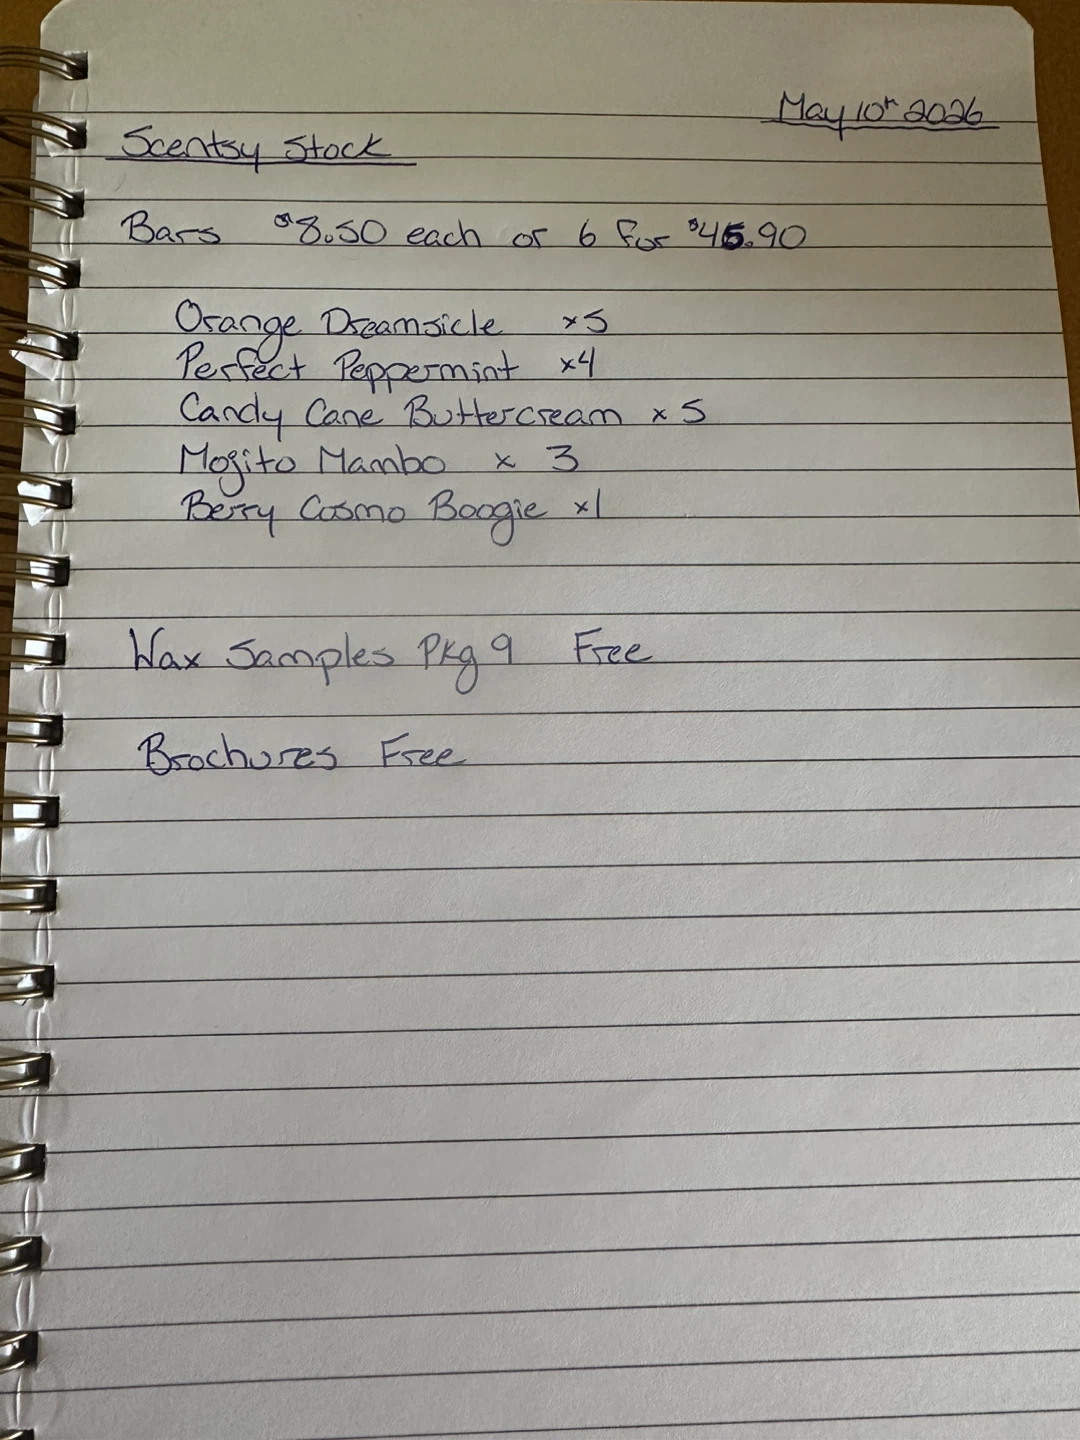 May 10th 2026
Scentsy Stock
Bars $8.50 each or 6 for $45.90
Orange Dreamsicle x5
Perfect Peppermint x4
Candy Cane Buttercream x 5
Mojito Mambo x 3
Berry Cosmo Boogie x1
Wax Samples Pkg 9 Free
Brochures Free